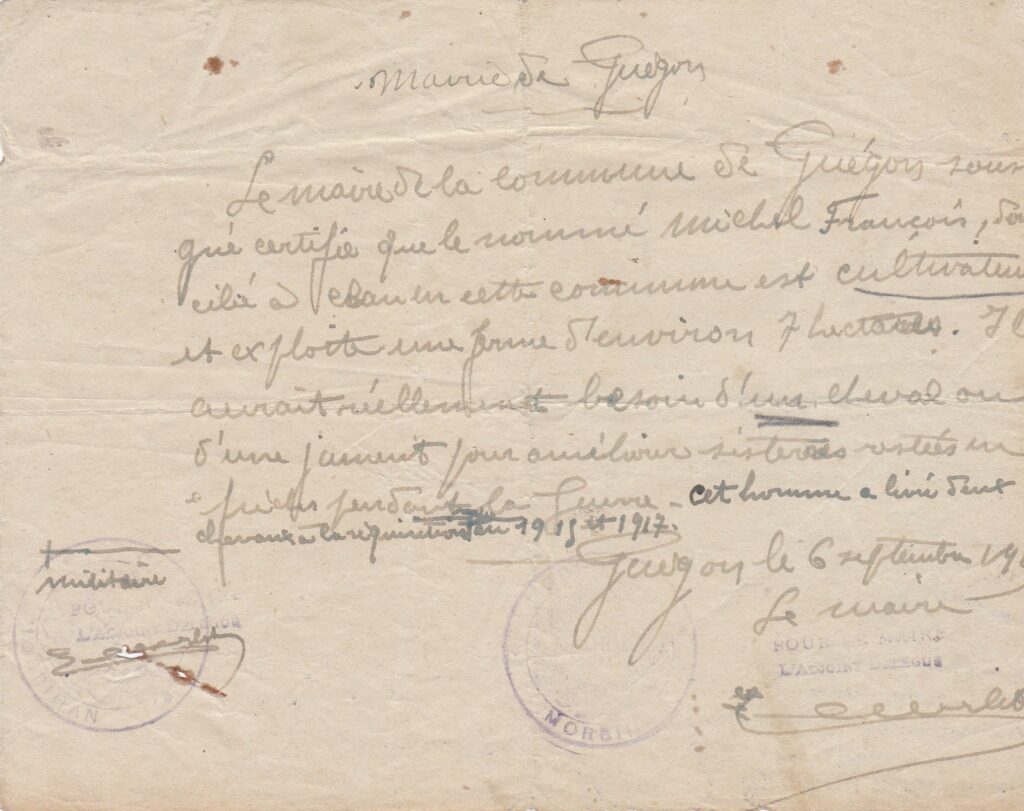 Mairie de Guégon
Le maire de la commune de Guégon sous
gné certifie que le nommé Michel François, do
cilié à en cette commune est cultivateu
et exploite une ferme d'environ 7 hectares. Il
aurait réellement besoin d'un cheval ou
d'une jument pour améliorer ses terres restées en
friches pendant la Guerre - cet homme a livré deux
chevaux à la réquisition en 1915 et 1917.
militaire
Guégon le 6 septembre 19
Le maire
POUR LE MAIRE
L'ADJOINT DÉLÉGUÉ
L'ADJOINT DÉLÉGUÉ
MORBIHAN
MORBIH